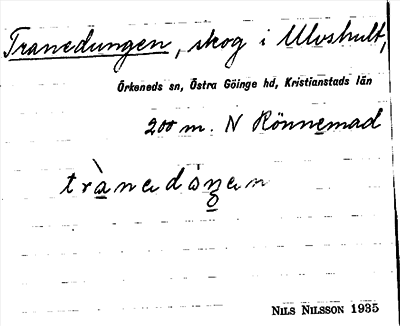 Tranedungen, skog i Ulvshult,
Örkeneds sn, Östra Göinge hd, Kristianstads län
200 m. N Rönnemad
NILS NILSSON 1935